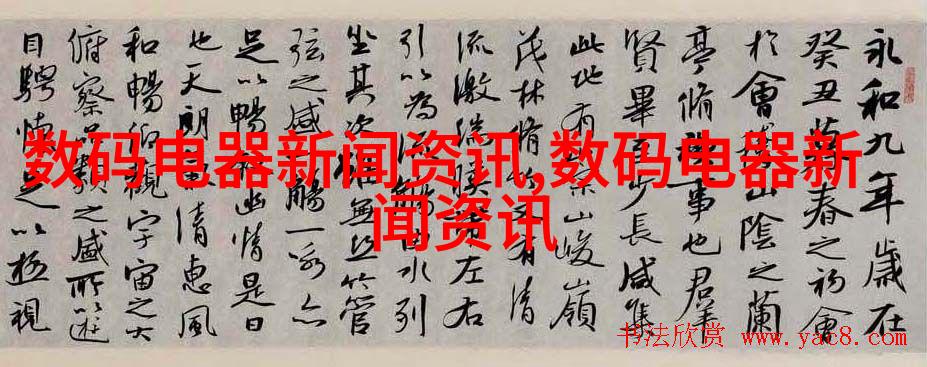 永和九年歲在
癸丑暮春之初會
於會稽山陰之蘭
亭脩禊事也群
賢畢至少長咸集
此地有崇山峻嶺
茂林脩竹又有清
流激湍暎帶左右
引以為流觴曲水列
坐其次雖無絲竹管
弦之盛觴一詠亦
足以暢敘幽情是日
也天朗氣清惠風
和暢仰觀宇宙之大
俯察品類之盛所以遊
目騁懷足以極視
数码电器新闻资讯,数码电器新
闻资讯
书法欣赏 www.yac8.com